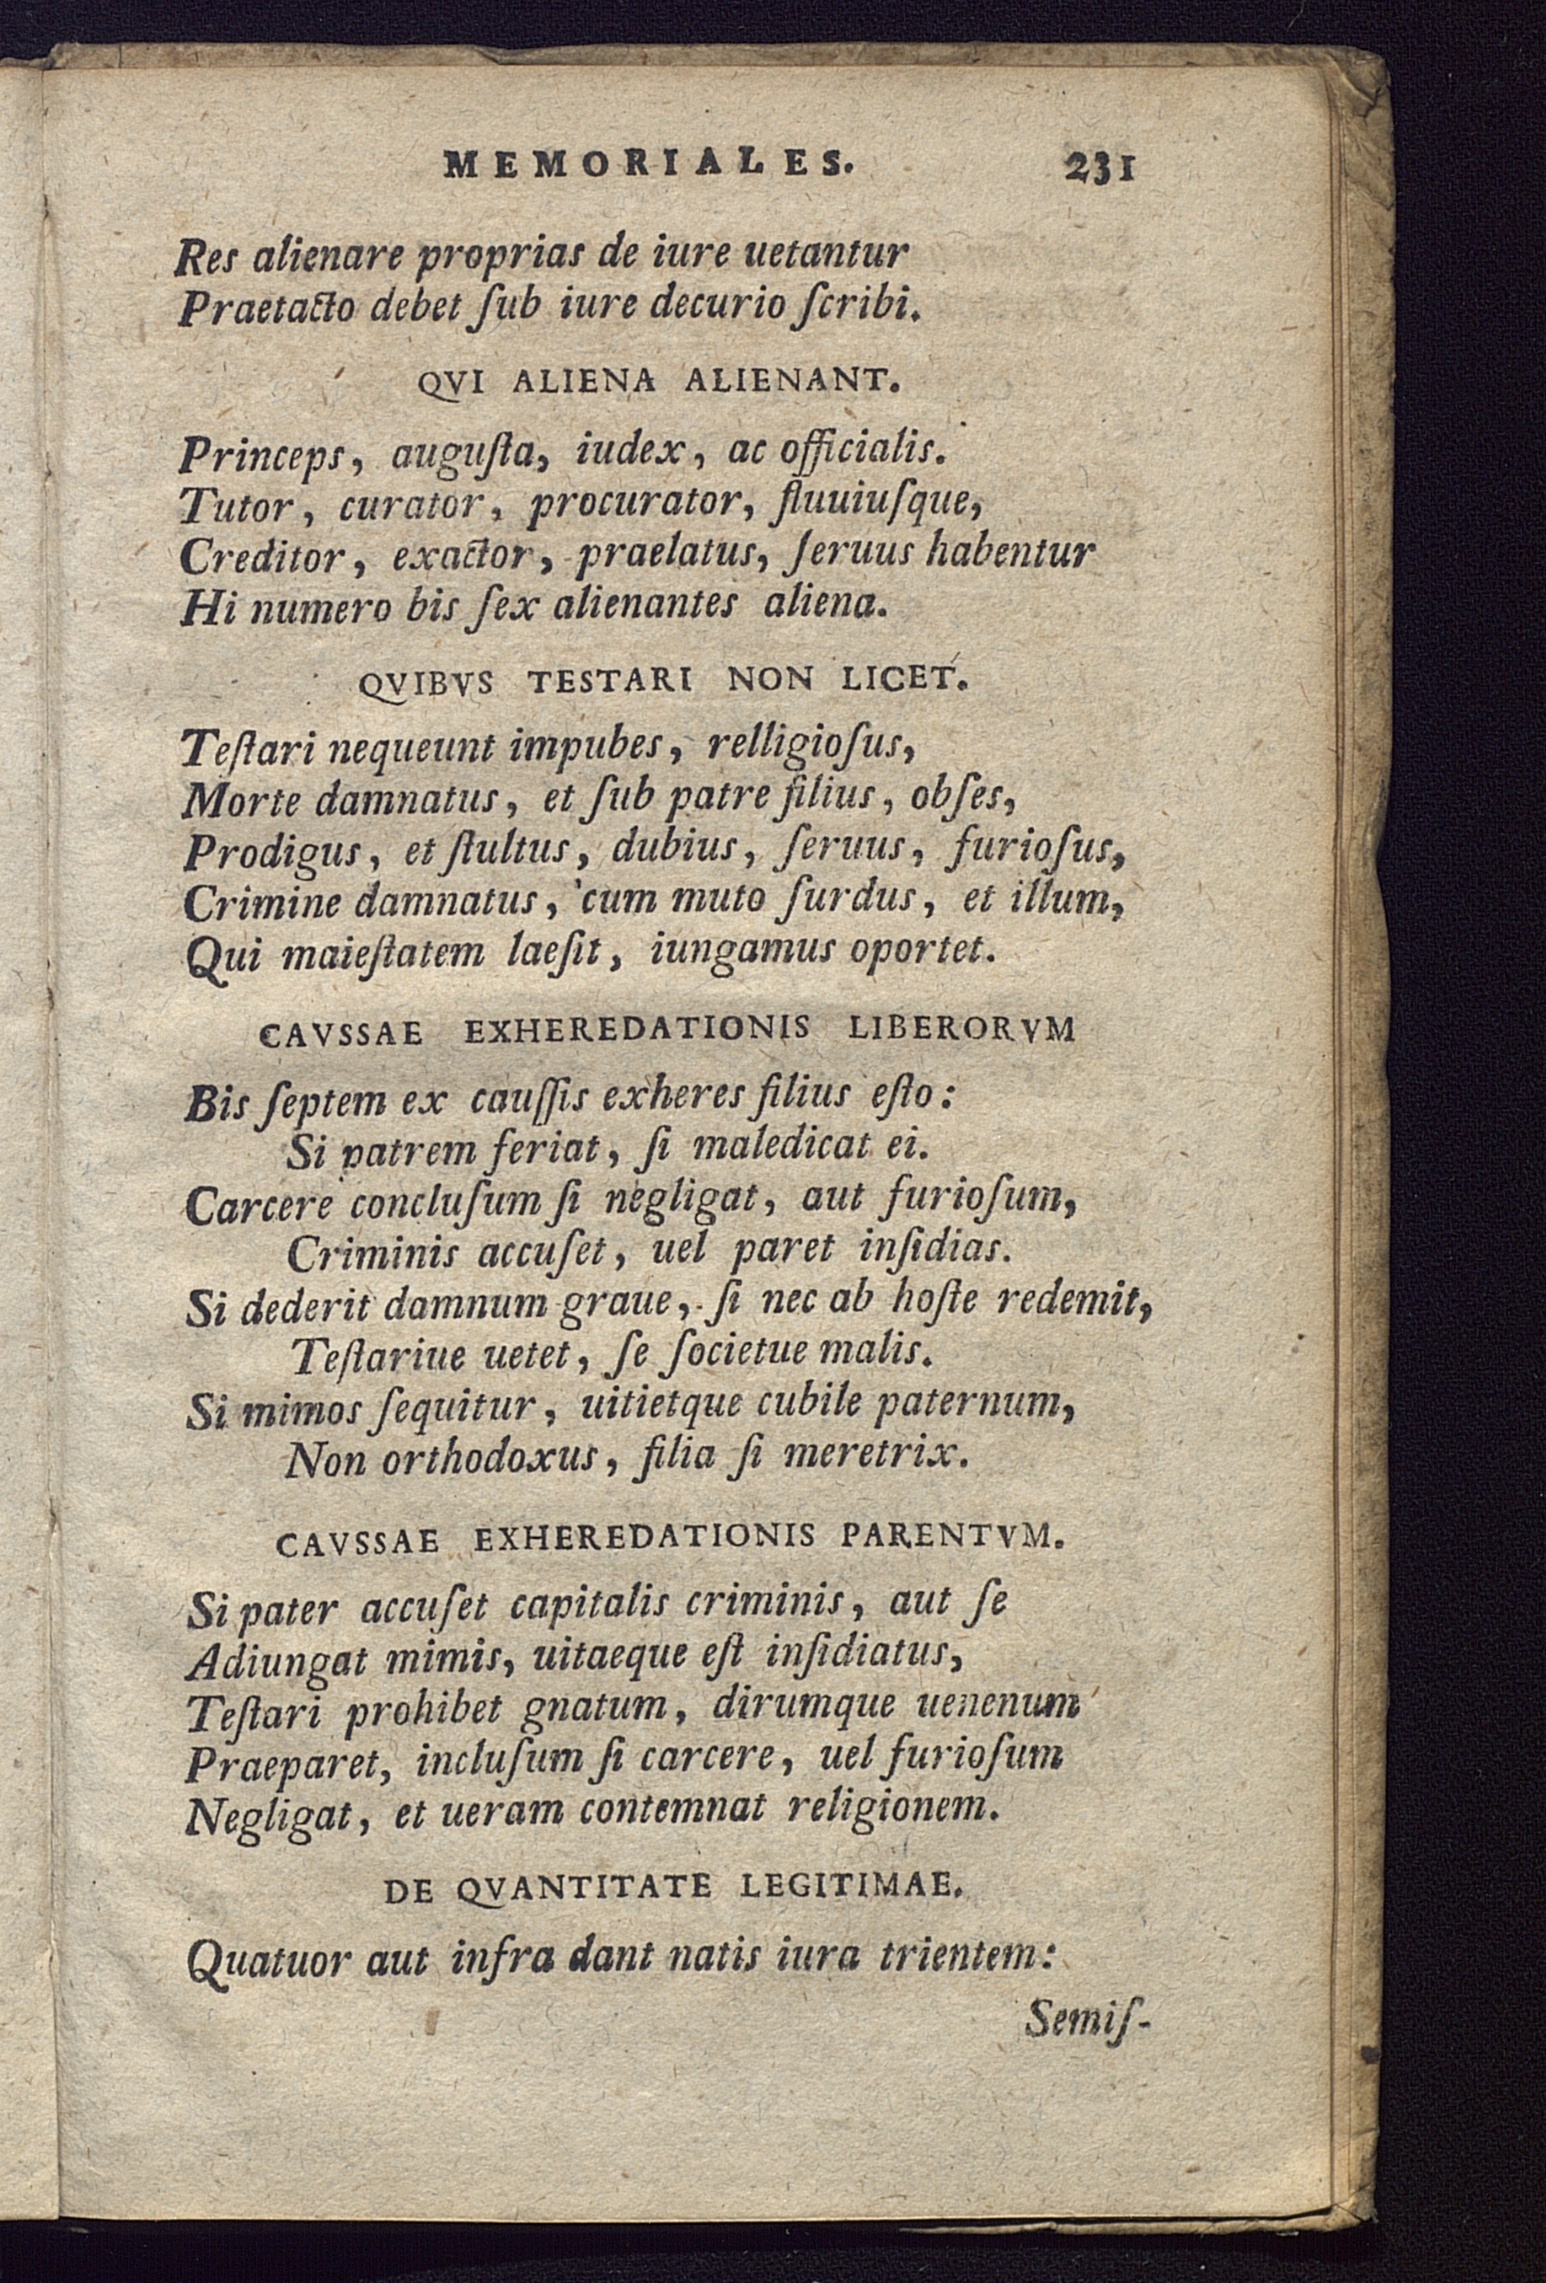 MEMORIALES. 231
Res alienare proprias de iure uetantur
Praetacto debet ſub iure decurio ſcribi.
QVI ALIENA ALIENANT.
Princeps, auguſta, iudex, ac officialis.
Tutor, curator, procurator, fluuiuſque,
Creditor, exactor, praelatus, ſeruus habentur
Hi numero bis ſex alienantes aliena.
QVIBVS TESTARI NON LICET.
Teſtari nequeunt impubes, relligioſus,
Morte damnatus, et ſub patre filius, obſes,
Prodigus, et ſtultus, dubius, ſeruus, furioſus,
Crimine damnatus, cum muto ſurdus, et illum,
Qui maieſtatem laeſit, iungamus oportet.
CAVSSAE EXHEREDATIONIS LIBERORVM
Bis ſeptem ex cauſſis exheres filius eſto:
Si patrem feriat, ſi maledicat ei.
Carcere concluſum ſi negligat, aut furioſum,
Criminis accuſet, uel paret inſidias.
Si dederit damnum graue, ſi nec ab hoſte redemit,
Teſtariue uetet, ſe ſocietue malis.
Si mimos ſequitur, uitietque cubile paternum,
Non orthodoxus, filia ſi meretrix.
CAVSSAE EXHEREDATIONIS PARENTVM.
Si pater accuſet capitalis criminis, aut ſe
Adiungat mimis, uitaeque eſt inſidiatus,
Teſtari prohibet gnatum, dirumque uenenum
Praeparet, incluſum ſi carcere, uel furioſum
Negligat, et ueram contemnat religionem.
DE QVANTITATE LEGITIMAE.
Quatuor aut infra dant natis iura trientem:
Semiſ-